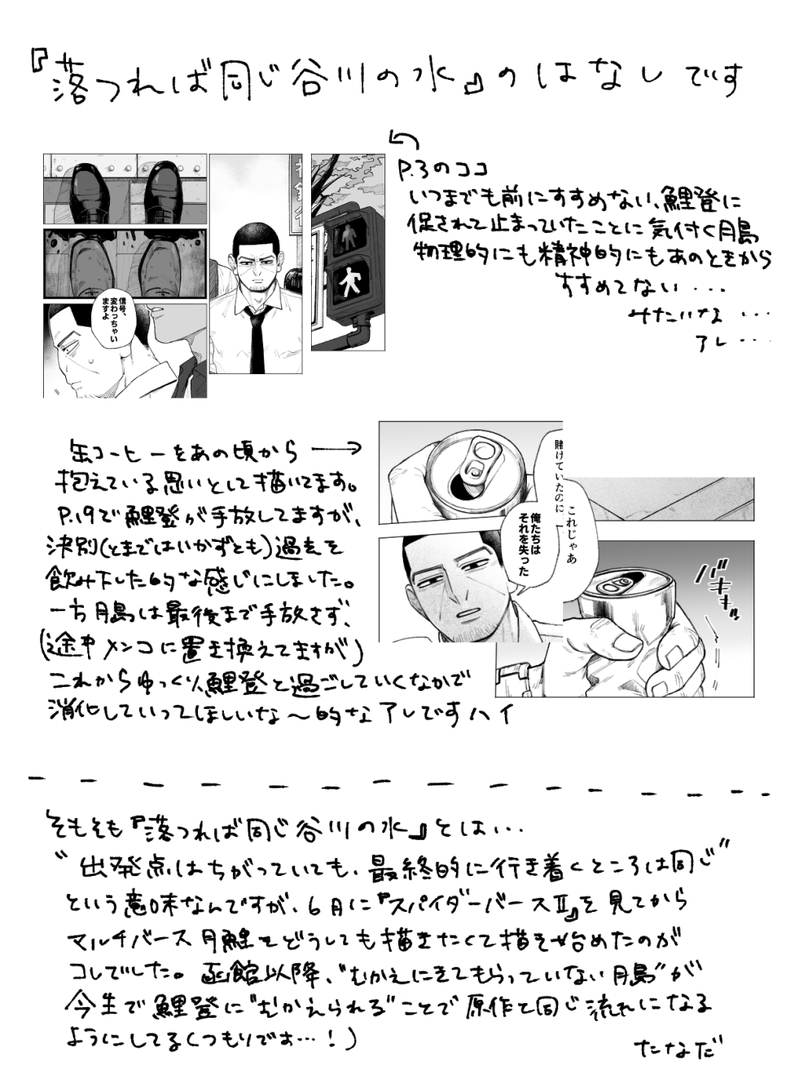 『落つれば同じ谷川の水』のはなしです
P.3のココ
いつまでも前にすすめない、鯉登に
促されて止まっていたことに気付く月島
物理的にも精神的にもあのときから
すすめてない・・・
みたいな・・・
アレ・・・
信号、
変わっちゃい
ますよ
缶コーヒーをあの頃から
抱えている思いとして描いてます。
P.19で鯉登が手放してますが、
決別(とまではいかずとも)過去を
飲み下した的な感じにしました。
一方月島は最後まで手放さず、
(途中メンコに置き換えてますが)
これからゆっくり鯉登と過ごしていくなかで
消化していってほしいな〜的なアレですハイ
賭けていたのに
これじゃあ
俺たちは
それを失った
バキキッ
そもそも『落つれば同じ谷川の水』とは・・・
"出発点はちがっていても、最終的に行き着くところは同じ"
という意味なんですが、6月に『スパイダーバースⅡ』を見てから
マルチバース月鯉をどうしても描きたくて描き始めたのが
コレでした。函館以降、"むかえにきてもらっていない月島"が
今生で鯉登に"むかえられる"ことで原作と同じ流れになる
ようにしてる(つもりです…!)
たなだ